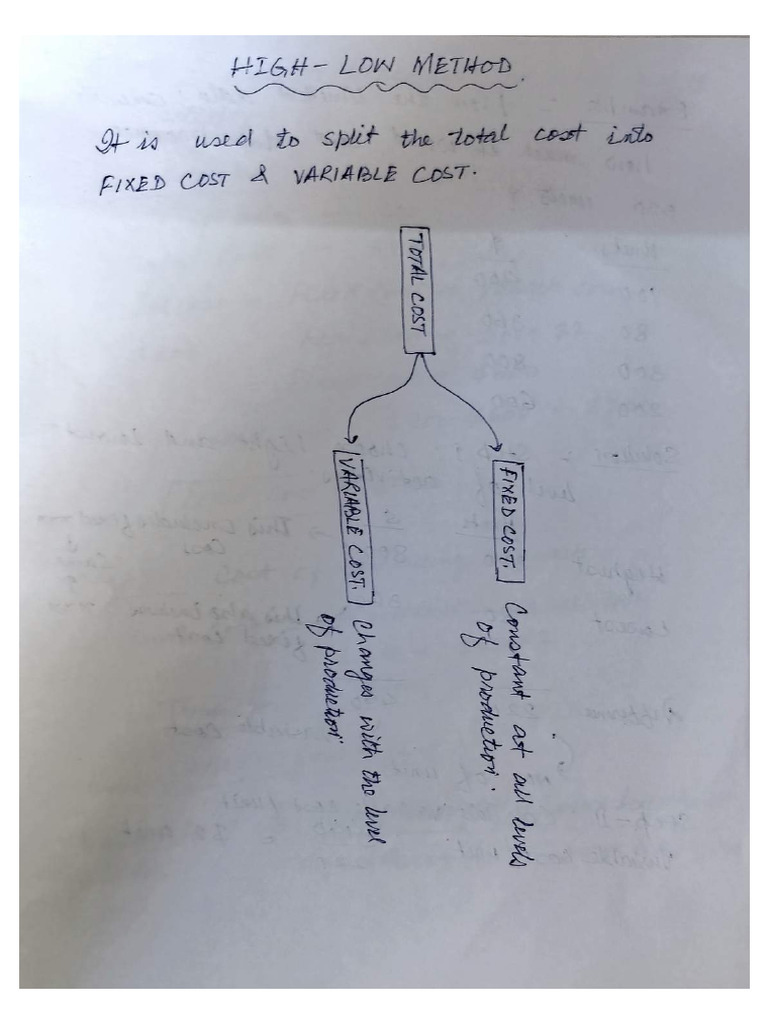 HIGH-LOW METHOD.
It is used to split the total cost into
FIXED COST & VARIABLE COST.
TOTAL COST
FIXED COST.
Constant at all levels
of production.
VARIABLE COST.
Changes with the level
of production.